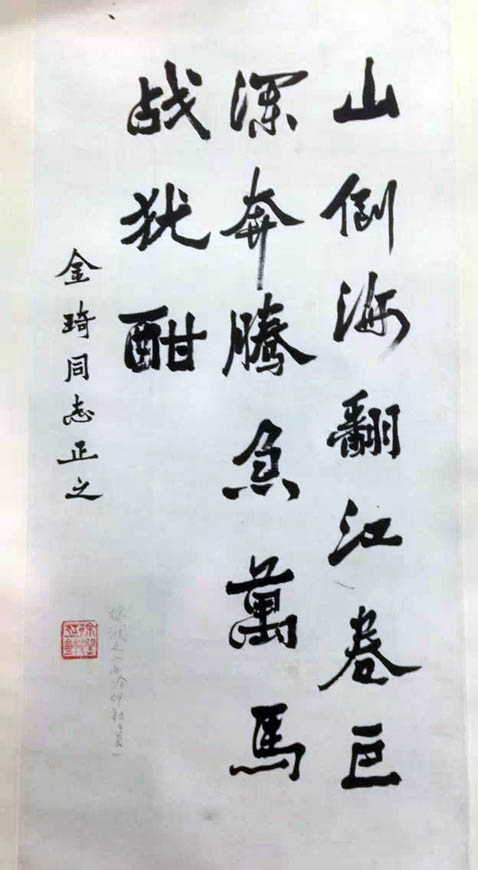 山倒海翻江卷巨
澜奔騰急萬馬
战犹酣
金琦同志正之